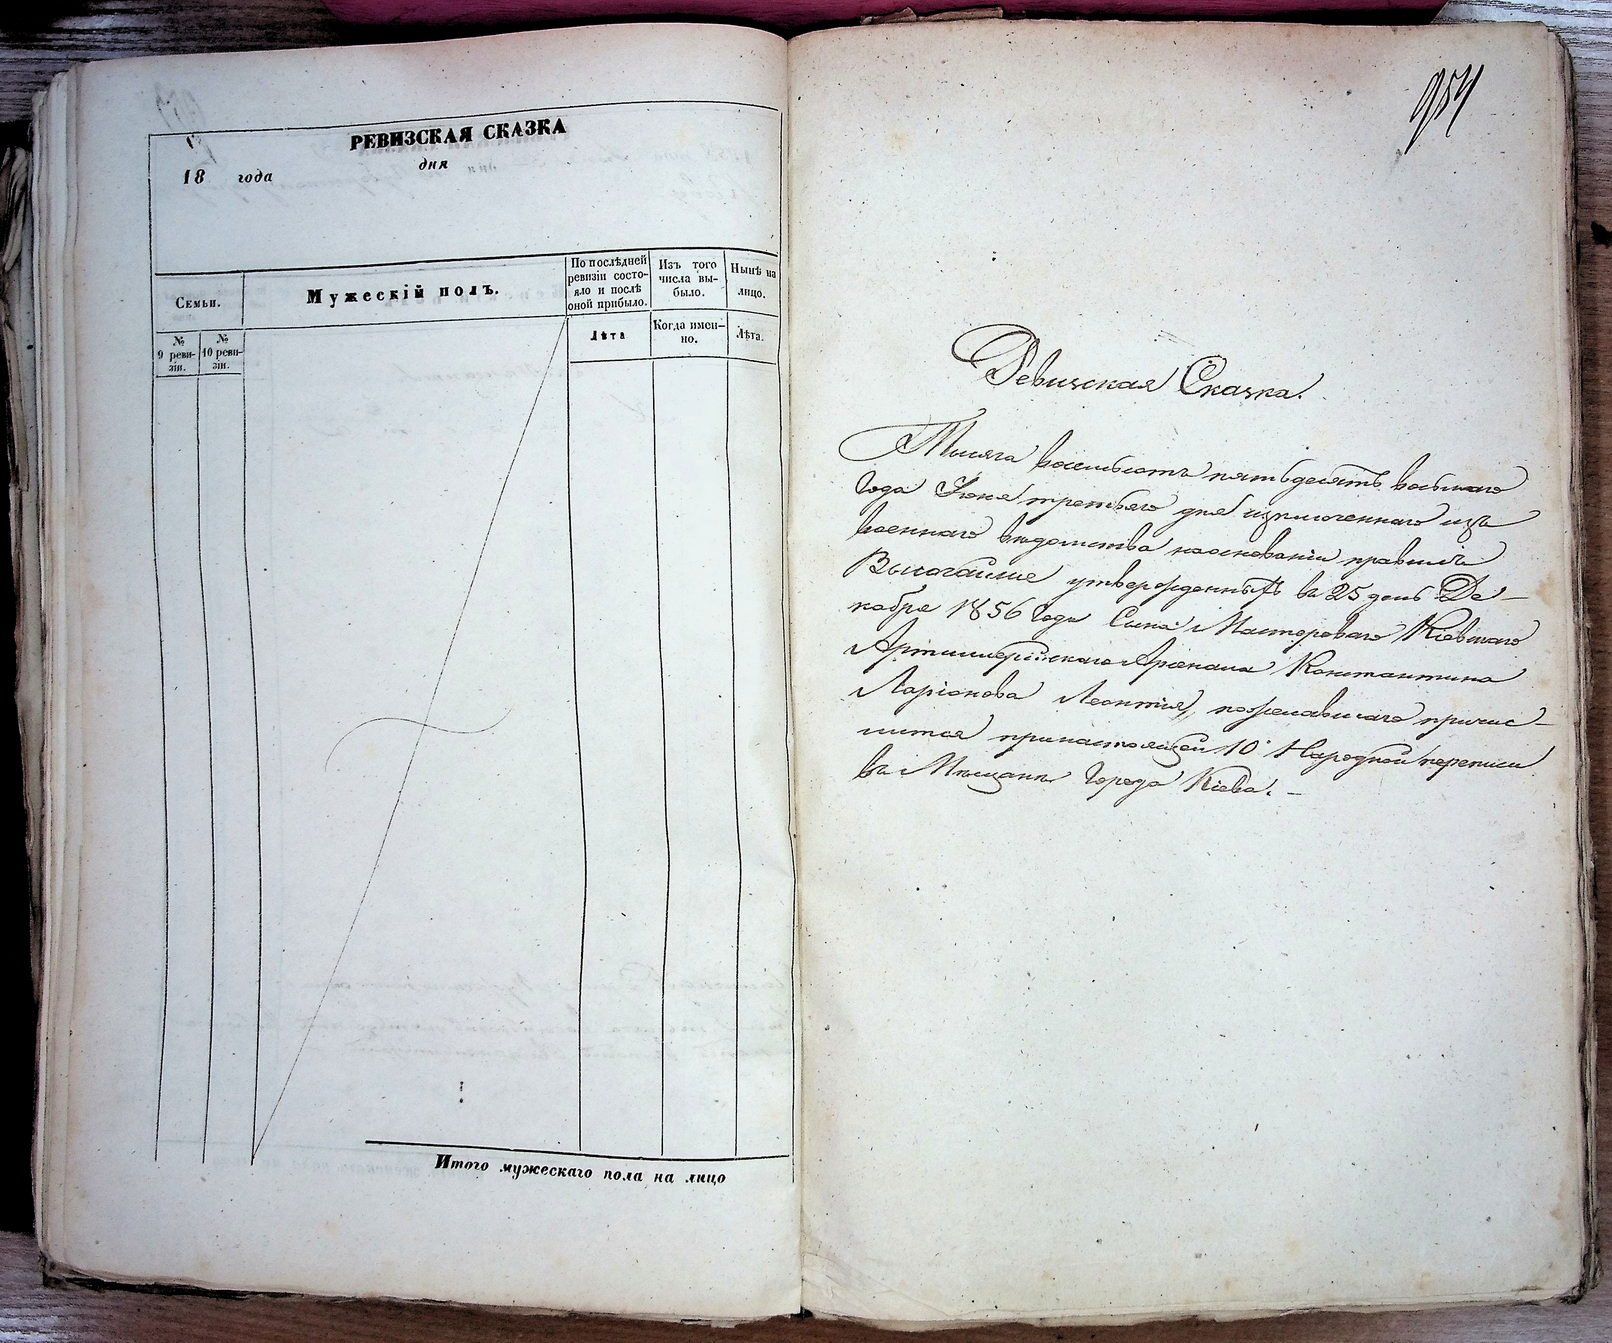 РЕВИЗСКАЯ СКАЗКА
дня
18 года
Семьи.
Мужескій полъ.
По послѣдней ревизіи состо-
яло и послѣ оной прибыло.
Изъ того числа вы-
было.
Нынѣ на лицо.
№ 9 реви-
зіи.
№ 10 реви-
зіи.
Лѣта
Когда имен-
но.
Лѣта.
Итого мужескаго пола на лицо
954
Ревизская Сказка.
Тысяча восемьсотъ пятьдесятъ восьмаго
Года Іюня третьяго дня исключеннаго изъ
военнаго вѣдомства наоснованіи правилъ
Высочайше утвержденныхъ въ 25 день Де-
кабря 1856 Года Сына Мастероваго Кіевскаго
Артиллерійскаго Арсенала Константина
Ларіонова Леонтія, пожелавшаго причис-
лится принастоящей 10й Народной переписи
въ Мѣщане Города Кіева. -